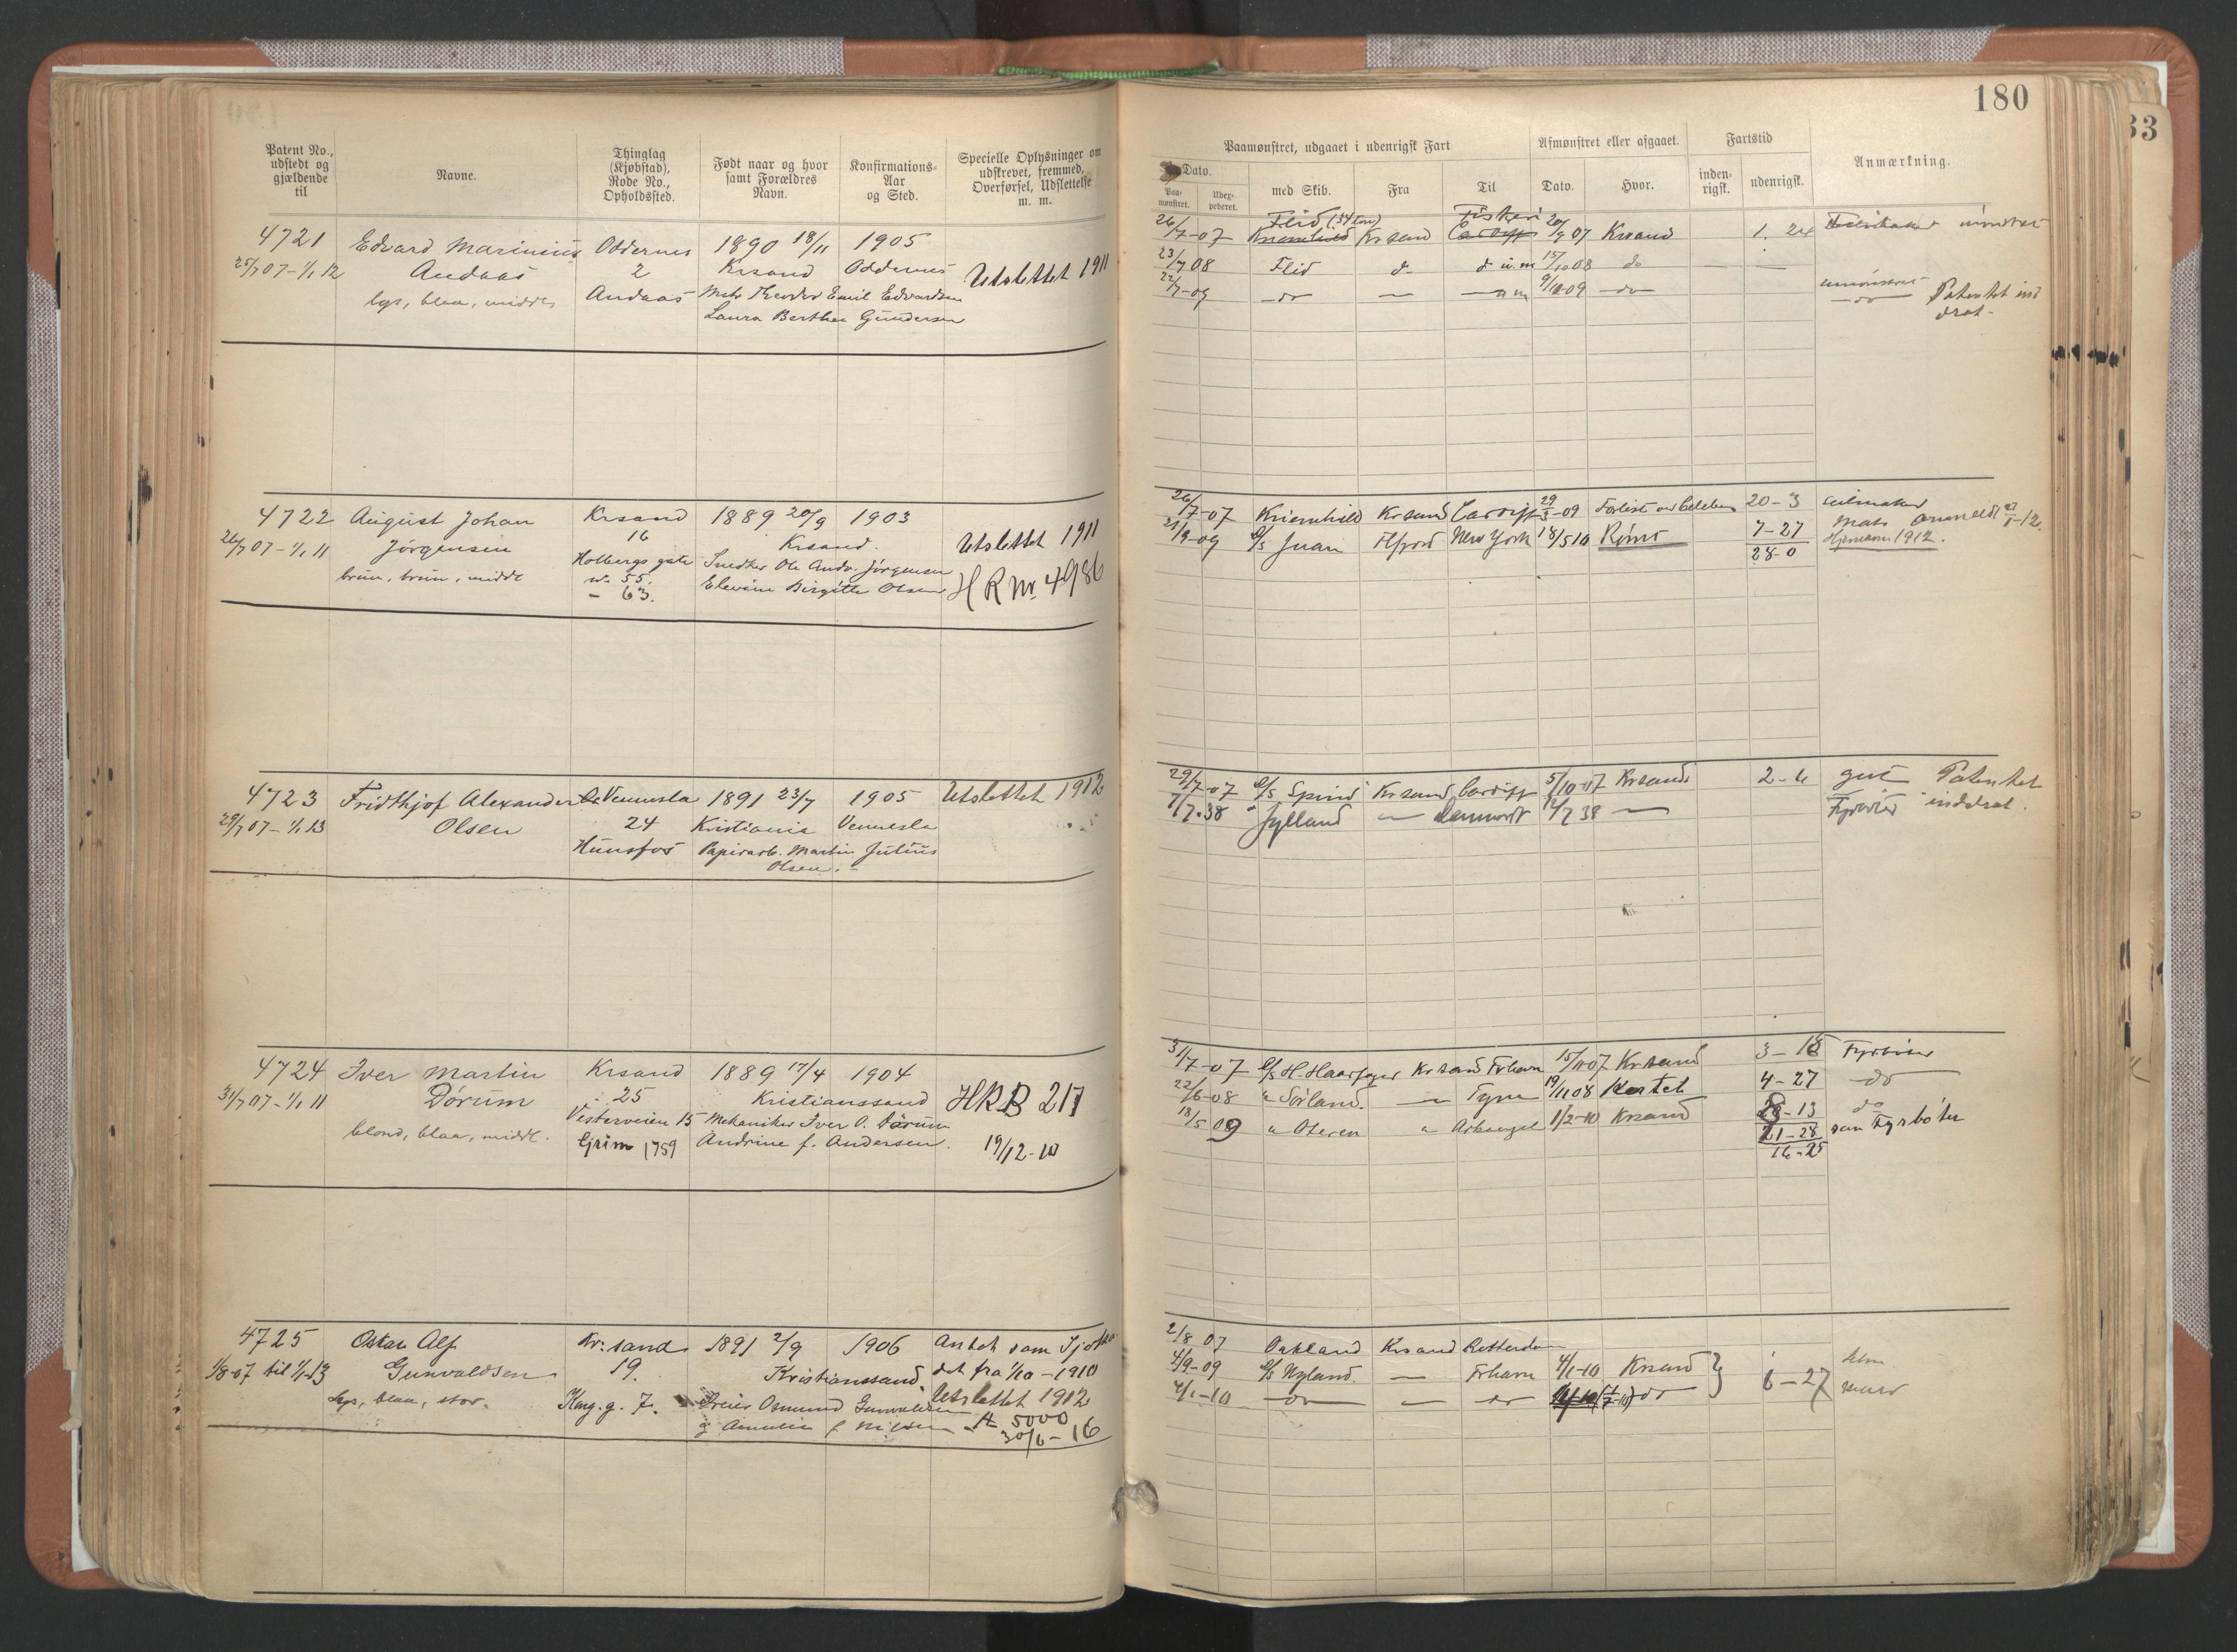 180
33
Patent No., udstedt og gjældende til
Navne.
Thinglag (Kjøbstad), Rode No., Opholdssted.
Født naar og hvor samt Forældres Navn.
Konfirmations-Aar og Sted.
Specielle Oplysninger om udskrevet, fremmed, Overførsel, Udslettelse m. m.
Paamønstret, udgaaet i udenrigsk Fart
Afmønstret eller afgaaet.
Fartstid
Anmærkning.
Dato.
Paa-mønstret.
Udex-pederet.
med Skib.
Fra
Til
Dato.
Hvor.
inden-rigsk.
udenrigsk.
4721 Edvard Marinius Oddernes 1890 18/11 1905
25/7 07 - 1/1 12 Andaas 2 Krsand Oddernes Utslettet 1911
lys, blaa, middl. Andaas Theodor Emil Edvardsen
Laura Berthea Gundersen
Flid (34 tons) Fiskeri
26/7-07 Kriemhild Krsand Cardiff 20/9 07 Krsand 1. 24
23/7 08 Flid do 15/10 08 do
22/7-09 do 9/10 09 do
do Patentet ind
drat.
4722 August Johan Krsand 1889 20/9 1903
26/7 07 - 1/1 11 Jörgensen 16 Krsand. Utslettet 1911
brun, brun, middl Holbergs gate Snedker Ole Andr. Jörgensen
no 55. Birgitte Olsen H R Nr. 4986
- 63.
26/7-07 Kriemhild Krsand Cardiff 29/3-09 20-3
21/9-09 S/s Juan New York 18/5 10 7-27
28-0 Hjemkom 1912.
4723 Fridthjof Alexander Vennesla 1891 23/7 1905 Utslettet 1912
29/7 07 - 1/1 13 Olsen 24 Kristiania Vennesla
Hunsfos Papirarb. Martin Julius
Olsen.
29/7-07 S/s Spind Krsand Cardiff 5/10-07 Krsand 2-6 gut Patentet
7/7.38 " Jylland — Danmark 12/7 38 — Fyrbøter inddrat.
4724 Iver Martin Krsand 1889 17/4 1904
31/7 07 - 1/1 11 Dörum 25 Kristianssand HRB 217
Vesterveien 15 Mekaniker Iver O. Dörum
blond, blaa, middl. Grim 1759 Andrine f. Andersen. 19/12-10
31/7-07 S/s H. Haarfager Krsand Frhavn 15/11 07 Krsand 3-15 Fyrbøter
22/6-08 " Sörland. — Tyne 19/11 08 4-27 do
13/5 09 " Oteren " Arkangel 1/2-10 Krsand 8-13 do
21-28 som Fyrbøter
16-25
4725 Oskar Alf Kr.sand 1891 2/9 1906
1/8-07 til 1/1-13 Gunvaldsen 19. Kristianssand. det fra 1/10-1910
Lys, blaa, stor. Kong. g. 7. Osmund Gunvaldsen Utslettet 1912
og Amalie f Nilsen A 5000
30/6-16
2/8 07 Oakland Krsand Rotterdam
4/9-09 S/s Nyland. — Frhavn 4/1-10 Krsand 6-27
4/1-10 do — do do